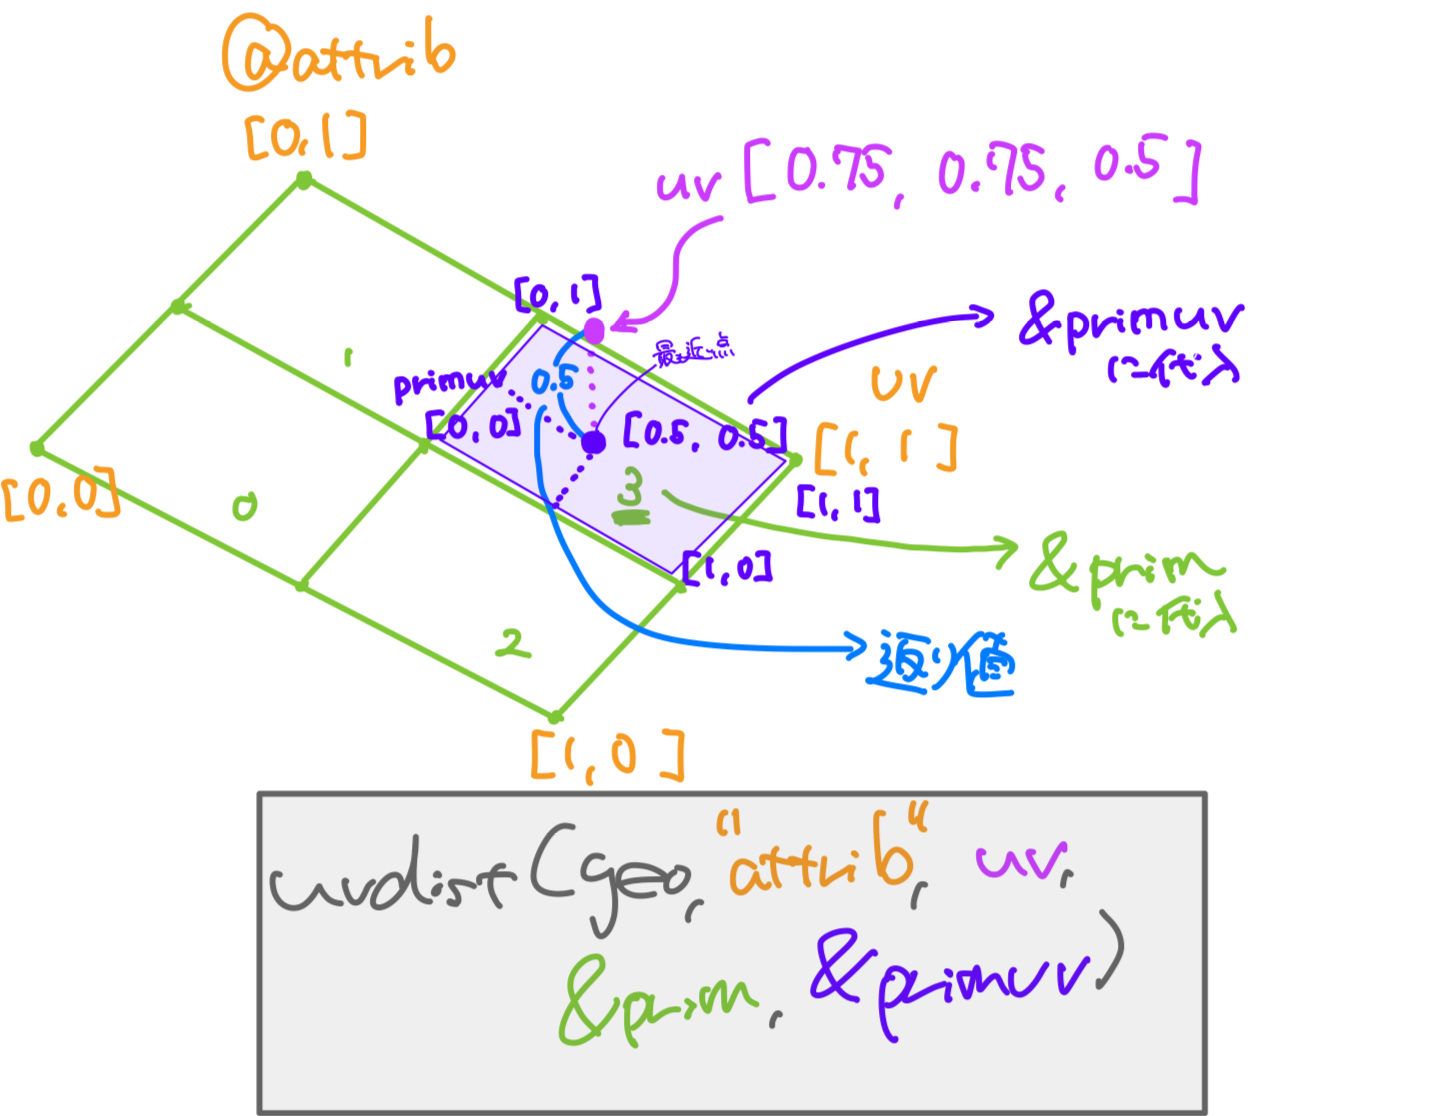 @attrib
[0,1]
uv [0.75, 0.75, 0.5]
[0,1]
最近点
&primuv
に代入
1
primuv
0.5
uv
[0,0]
[0.5, 0.5]
[1,1]
[0,0]
0
3
[1,1]
[1,0]
&prim
に代入
2
返り値
[1,0]
uvdist(geo, "attrib", uv,
&prim, &primuv)